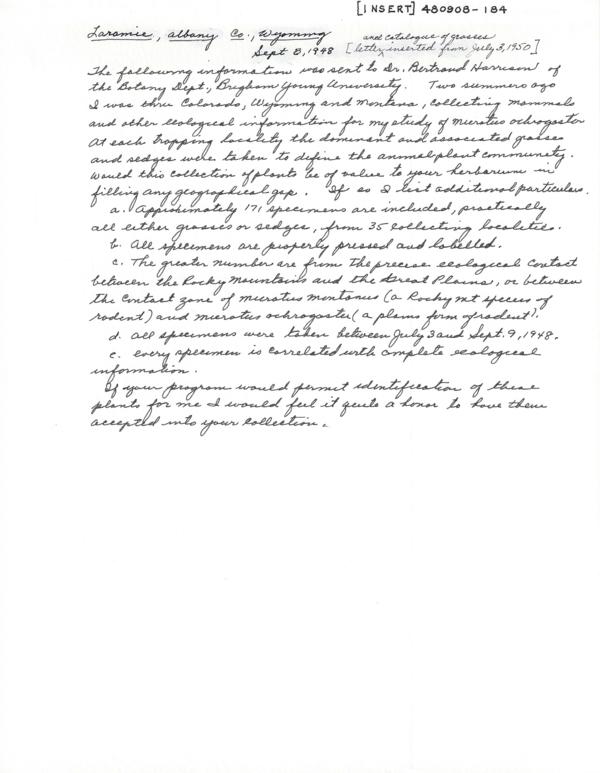 [INSERT] 480908-184
Laramie, Albany Co., Wyoming
and catalogue of grasses
Sept 8, 1948 [letter, inserted from July 3, 1950]
The following information was sent to Dr. Bertrand Harrison of
the Botany Dept., Brigham Young University. Two summers ago
I was thru Colorado, Wyoming and Montana, collecting mammals
and other ecological information for my study of Microtus ochrogaster
At each trapping locality the dominant and associated grasses
and sedges were taken to define the animal plant community.
Would this collection of plants be of value to your herbarium in
filling any geographical gap. If so I list additional particulars.
a. Approximately 171 specimens are included, practically
all either grasses or sedges, from 35 collecting localities.
b. All specimens are properly pressed and labelled.
c. The greater number are from the precise ecological contact
between the Rocky Mountains and the Great Plains, or between
the contact zone of Microtus montanus (a Rocky mt species of
rodent) and Microtus ochrogaster (a plains form of rodent).
d. All specimens were taken between July 3 and Sept. 9, 1948.
e. Every specimen is correlated with complete ecological
information.
If your program would permit identification of these
plants for me I would feel it quite a honor to have them
accepted into your collection.